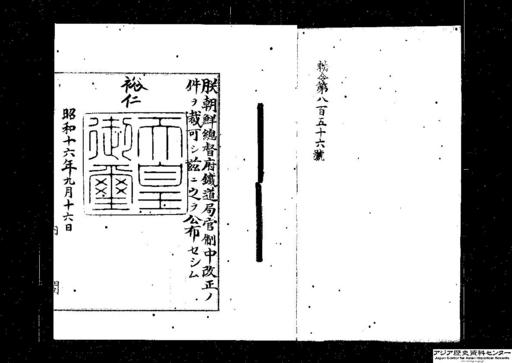 勅令第八百五十六號
朕朝鮮總督府鐵道局官制中改正ノ
件ヲ裁可シ茲ニ之ヲ公布セシム
裕仁
天皇
御璽
昭和十六年九月十六日
内閣
アジア歴史資料センター
Japan Center for Asian Historical Records